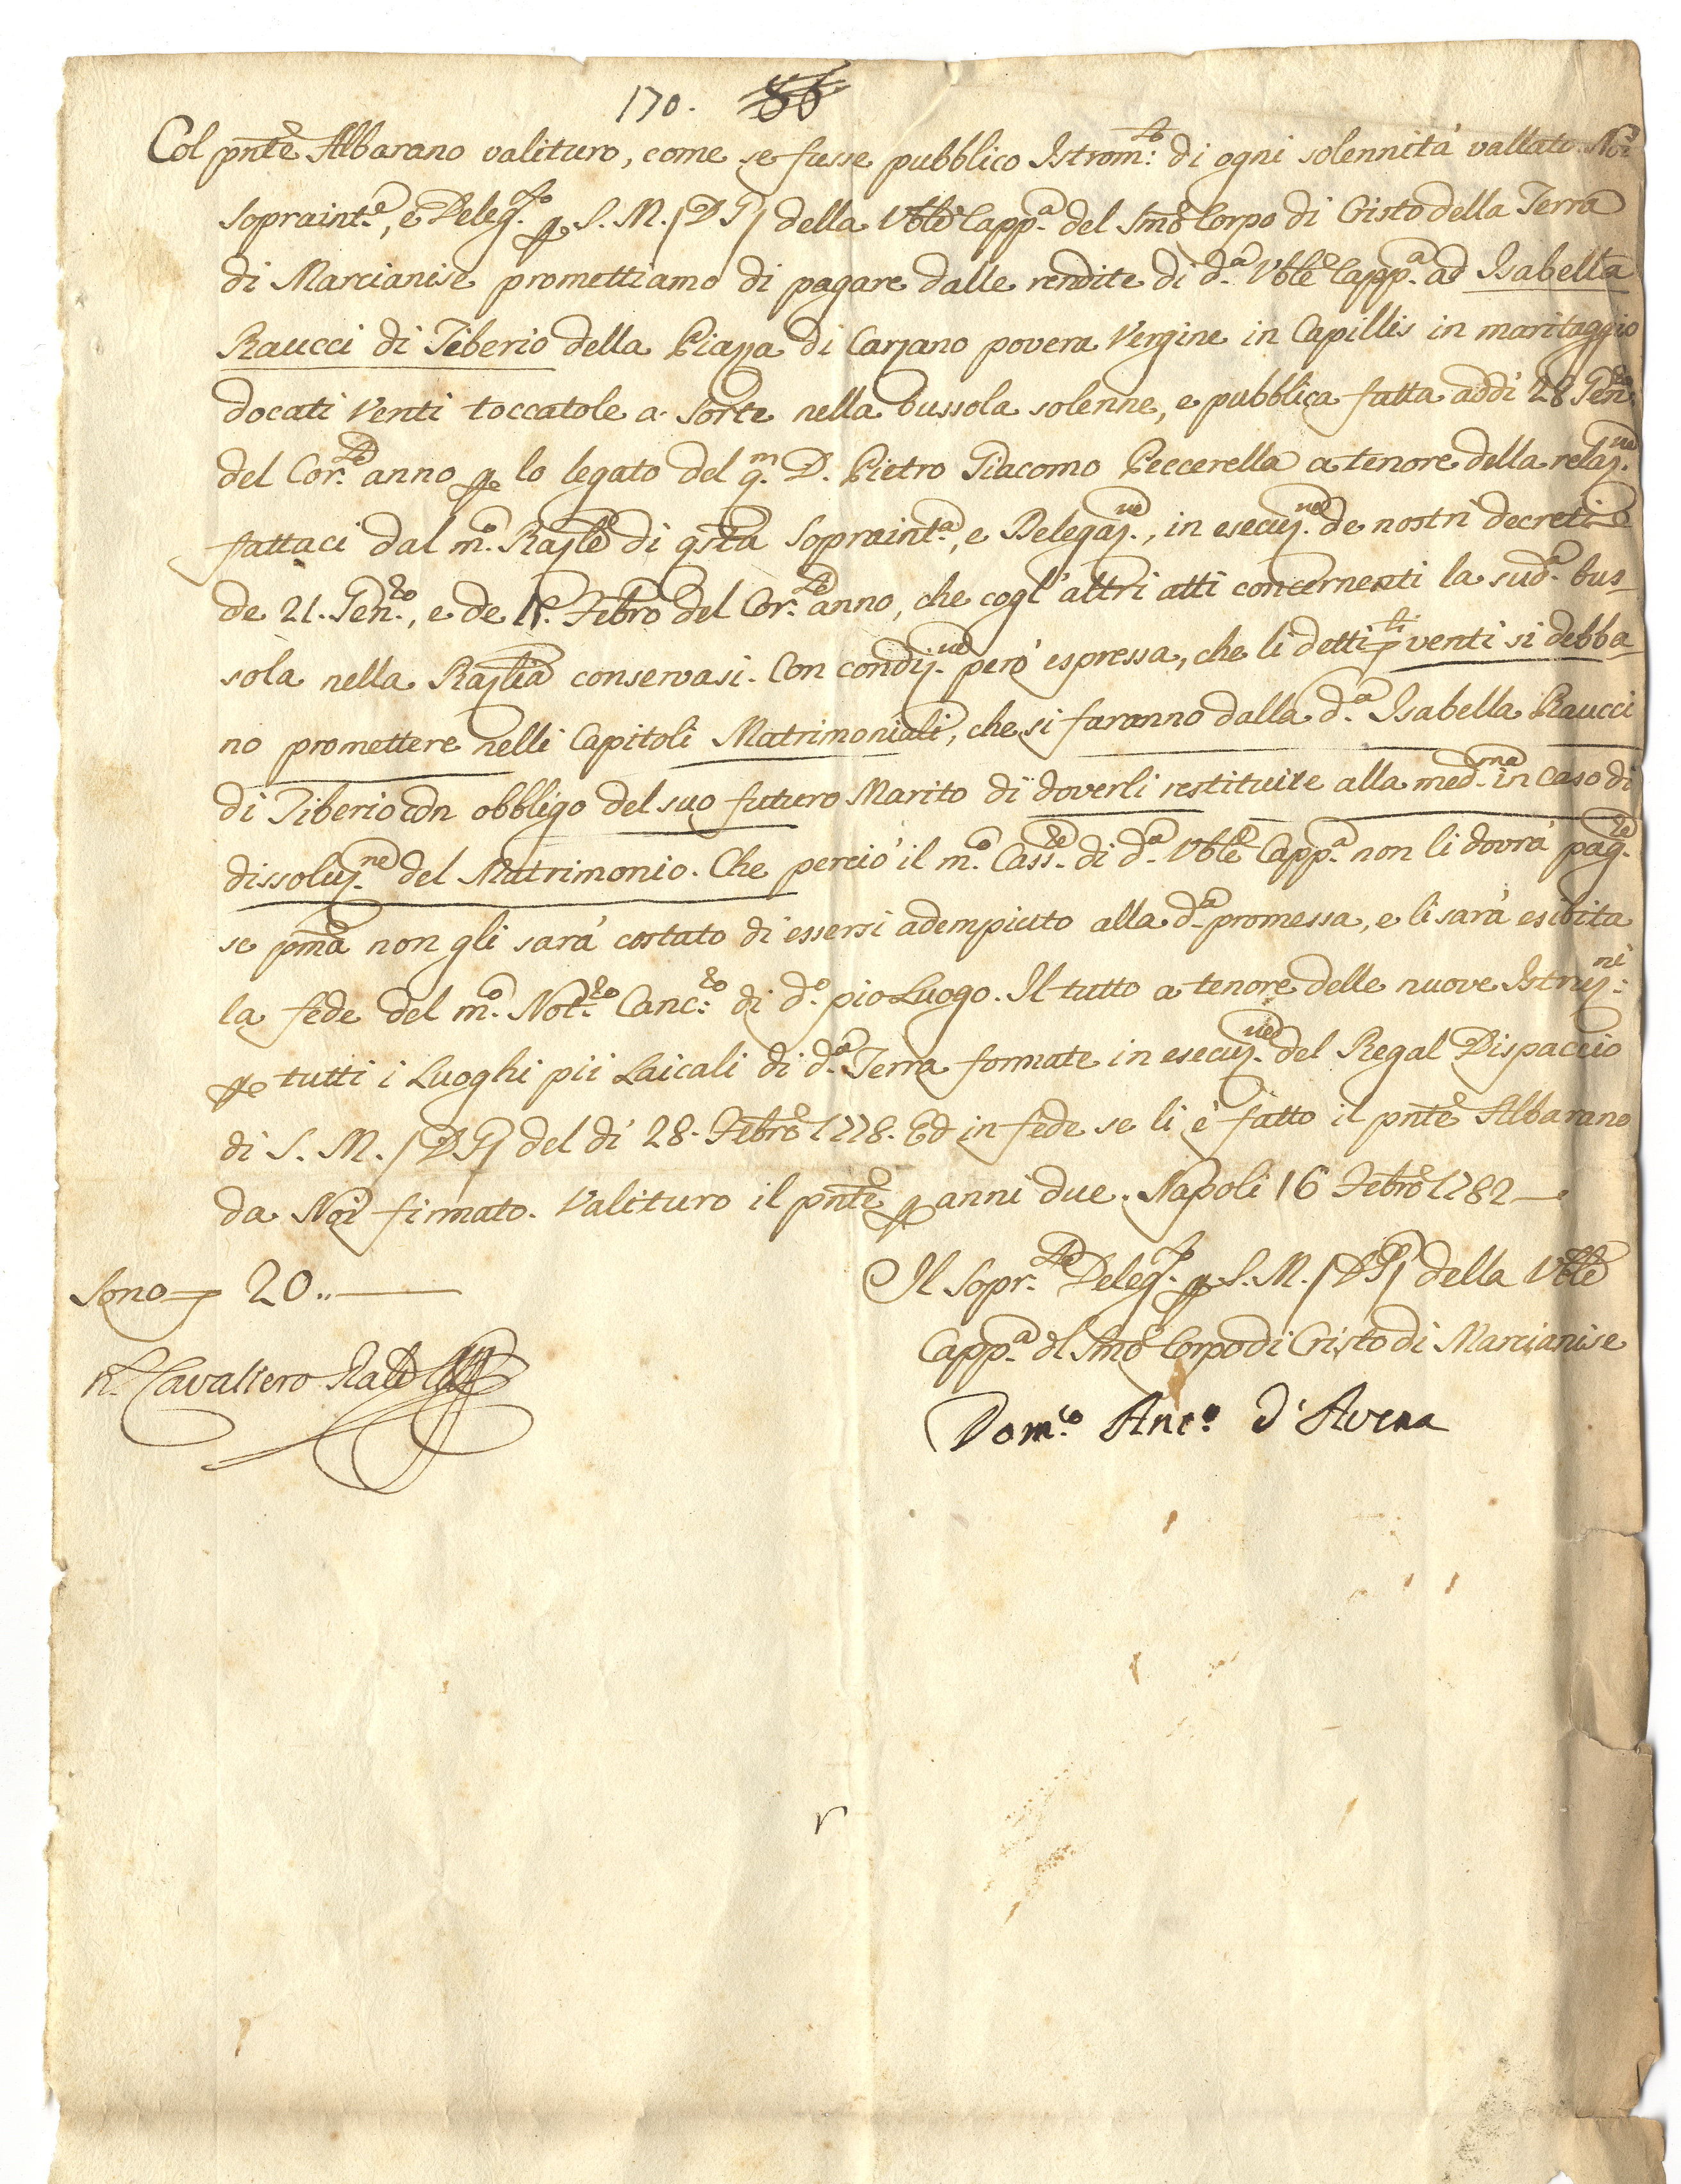 170. 86
Col pnte Albarano valituro, come se fusse pubblico Istrom:to di ogni solennità vallato Noi
Sopraint.e, e Deleg.to p S. M. (D. G.) della Vble Capp.a del SSmo Corpo di Cristo della Terra
di Marcianise promettiamo di pagare dalle rendite di d.a Vble Capp.a ad Isabella
Raucci di Tiberio della Piazza di Carzano povera Vergine in Capillis in maritaggio
docati Venti toccatole a sorte nella bussola solenne, e pubblica fatta addì 28 Gen.ro
del Cor.te anno p lo legato del q.m D. Pietro Giacomo Peccerella a tenore della relaz.ne
fattaci dal m.o Raz.le di qsta Sopraint.a, e Delegaz.ne, in esecuz.ne de nostri decreti
de 21. Gen.ro, e de Febro del Cor.te anno, che cogl'altri atti concernenti la sud.a bus-
sola nella Razlia conservasi. Con condiz.ne però espressa, che li detti d.ti venti si debba-
no promettere nelli Capitoli Matrimoniali, che si faranno dalla d.a Isabella Raucci
di Tiberio con obbligo del suo futuro Marito di doverli restituire alla med.ma in caso di
dissoluz.ne del Matrimonio. Che perciò il m.o Cass.re di d.a Vble Capp.a non li dovrà pag.re
se pma non gli sarà costato di essersi adempiuto alla d.a promessa, e li sarà esibita
la fede del m.o Not.ro Canc:ro di d.o pio Luogo. Il tutto a tenore delle nuove Istruz:ni
p tutti i Luoghi pii Laicali di d.a Terra formate in esecuz.ne del Regal Dispaccio
di S. M. (D. G.) del dì 28. Febro 1778. Ed in fede se li è fatto il pnte Albarano
da Noi firmato. Valituro il pnte p anni due. Napoli 16 Febro 1782
Sono d. 20..
Il Sopr.te Deleg.to p S. M. (D. G.) della Vble
Capp.a del SSmo Corpo di Cristo di Marcianise
Cavaliero
Dom.co Ant.o d'Avena